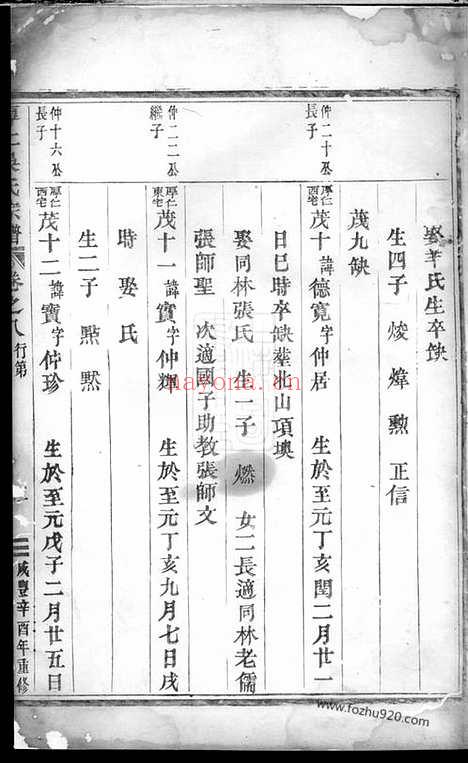 娶李氏生卒缺
生四子 焌 煒 勲 正信
茂九缺
仲二十公
長子
厚仁
西宅
茂十 諱德寬 字仲居 生於至元丁亥閏二月廿一
日巳時卒缺塟北山項墺
娶同林張氏 生一子 燃 女二長適同林老儒
張師聖 次適國子助教張師文
仲二二公
繼子
厚仁
東宅
茂十一 諱實 字仲輝 生於至元丁亥九月七日戌
時娶氏
生二子 㸃 默
仲十六公
長子
厚仁
西宅
茂十二 諱寶 字仲珍 生於至元戊子二月廿五日
氏宗譜 卷之八 行第 咸豐辛酉年重修
nayona.cn
www.fozhu920.com